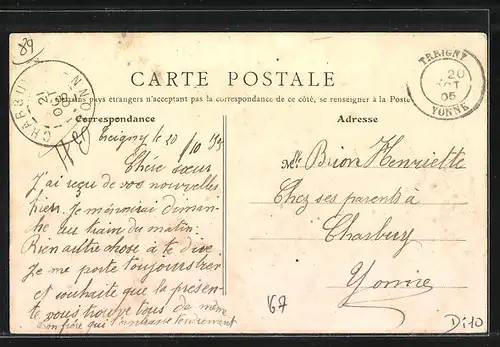 89
CARTE POSTALE
Certains pays étrangers n'acceptant pas la correspondance de ce côté, se renseigner à la Poste
TREIGNY
20
OCT
05
YONNE
CHARBUY
21
OCT
05
YONNE
Correspondance
Adresse
Treigny le 20/10
Chère sœur
J'ai reçu de vos nouvelles
hier. Je m'en irai diman-
che au train du matin.
Rien autre chose à te dire
Je me porte toujours bien
et souhaite que la présen-
te vous trouve tous de même
Ton frère qui t'embrasse tendrement
Mlle Brion Henriette
Chez ses parents à
Charbuy
Yonne
67
Di10